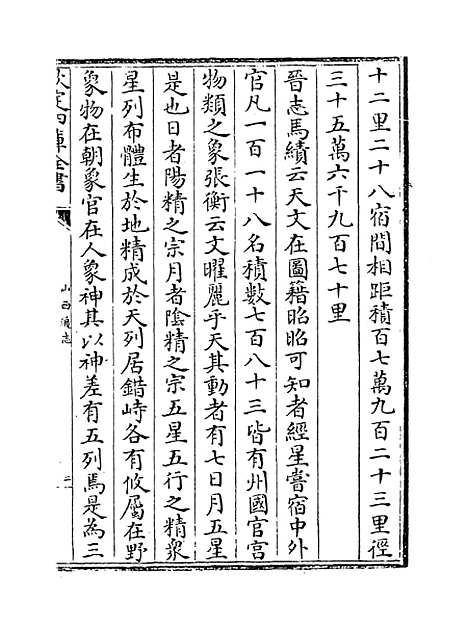 十二里二十八宿間相距積百七萬九百二十三里徑
三十五萬六千九百七十里
晉志馬續云天文在圖籍昭昭可知者經星嘗宿中外
官凡一百一十八名積數七百八十三皆有州國官宫
物類之象張衡云文曜麗乎天其動者有七日月五星
是也日者陽精之宗月者陰精之宗五星五行之精衆
星列布體生於地精成於天列居錯峙各有攸屬在野
象物在朝象官在人象神其以神差有五列焉是為三
欽定四庫全書
山西通志